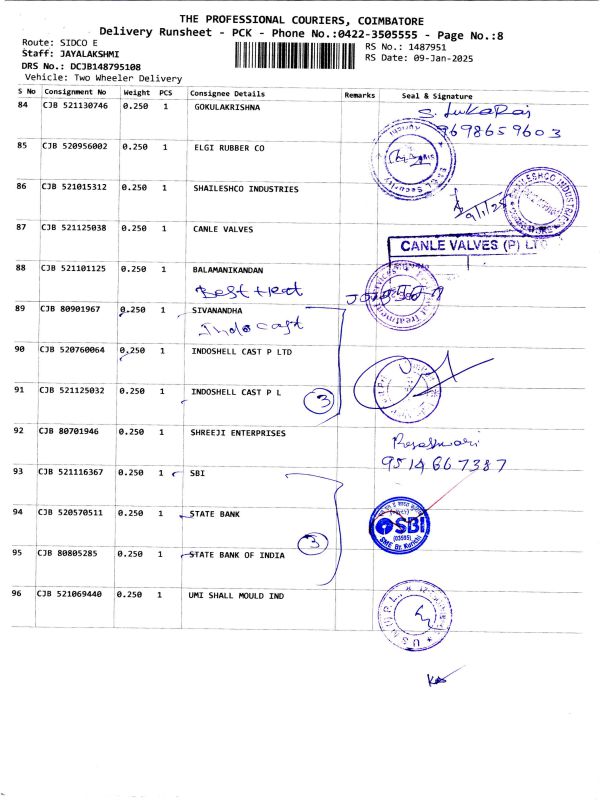 THE PROFESSIONAL COURIERS, COIMBATORE
Delivery Runsheet - PCK - Phone No.:0422-3505555 - Page No.:8
Route: SIDCO E
RS No.: 1487951
Staff: JAYALAKSHMI
RS Date: 09-Jan-2025
DRS No.: DCJB148795108
Vehicle: Two Wheeler Delivery
S No Consignment No Weight PCS Consignee Details Remarks Seal & Signature
84 CJB 521130746 0.250 1 GOKULAKRISHNA
9698659603
85 CJB 520956002 0.250 1 ELGI RUBBER CO
86 CJB 521015312 0.250 1 SHAILESHCO INDUSTRIES
SHAILESHCO INDUSTRIES
87 CJB 521125038 0.250 1 CANLE VALVES
CANLE VALVES (P) LTD
88 CJB 521101125 0.250 1 BALAMANIKANDAN
Best Heat
89 CJB 80901967 0.250 1 SIVANANDHA
Indo cast
90 CJB 520760064 0.250 1 INDOSHELL CAST P LTD
91 CJB 521125032 0.250 1 INDOSHELL CAST P L
3
92 CJB 80701946 0.250 1 SHREEJI ENTERPRISES
9514667387
93 CJB 521116367 0.250 1 SBI
94 CJB 520570511 0.250 1 STATE BANK
SBI
(03595)
SME Br.
95 CJB 80805285 0.250 1 STATE BANK OF INDIA
3
96 CJB 521069440 0.250 1 UMI SHALL MOULD IND